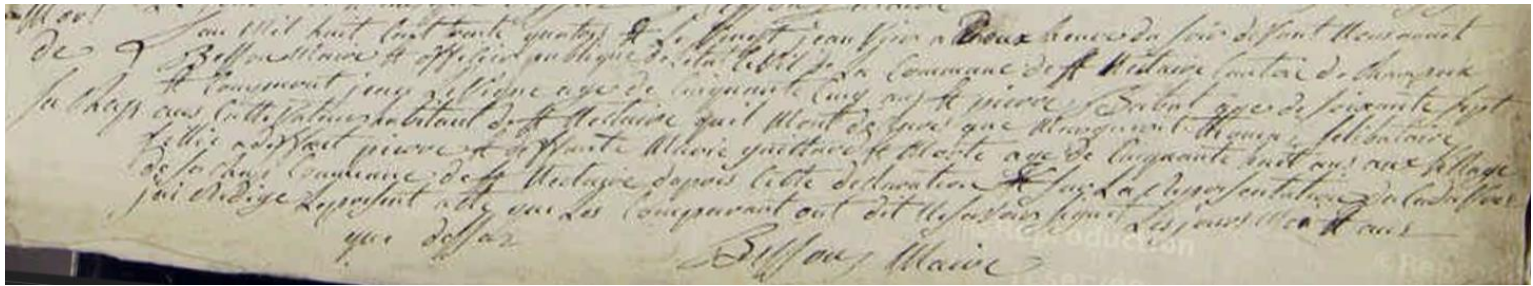 Mort
de
Sachap
au Mil huit Cent trente quatre et le vingt jeanvier a Deux heures du soir devant Nous
Bessou Maire et officier publique de letat Civil de la Commune de st Nectaire Canton de Champeix
et Comparant jean age de Cinquante Cinq ans et pierre Babut age de soixante sept
ans Cultivateurs habitant de st Nectaire quil Mont declaré que Marguerite selibataire
fillie a deffunt pierre et deffunte Marie Morte age de Cinquante huit ans aux village
de Sachap Commune de st Nectaire depuis Cette declaration et sur La Representation du Cadavre
jai Redigé Lepresent acte que Les Comparant ont dit Nesavoir signer Les jours Mois et ans
que dessus
Bessou Maire
Reproduction